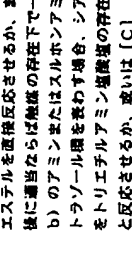 エステルを直接反応させるか、ま
後に適当ならば触媒の存在下で一
b) のアミンまたはスルホンアミ
トラゾール環を表わす場合、シア
をトリエチルアミン塩酸塩の存在
と反応させるか、或いは [C]